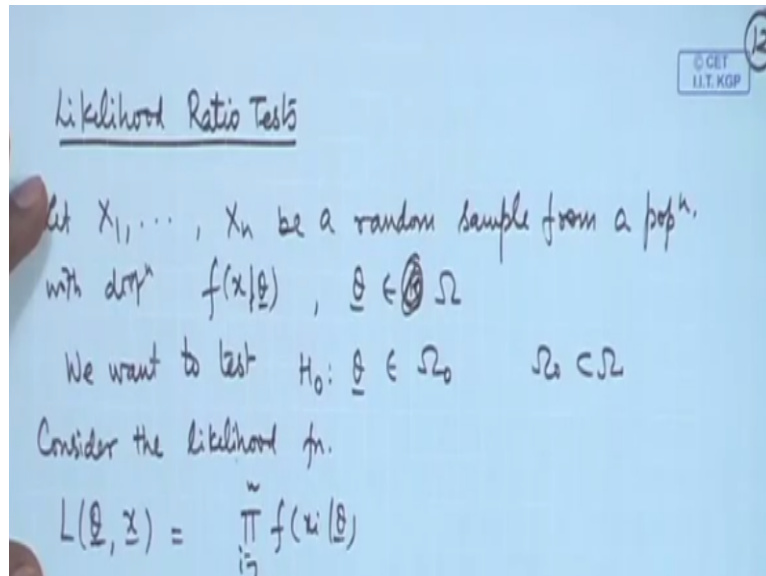 12
© CET
I.I.T. KGP
Likelihood Ratio Tests
Let X₁, ⋯, Xₙ be a random sample from a popⁿ.
with f(x|θ̲), θ̲ ∈ Ω
We want to test H₀: θ̲ ∈ Ω₀ Ω₀ ⊂ Ω
Consider the likelihood fn.
L(θ̲, x̲) = π f(xi|θ̲)